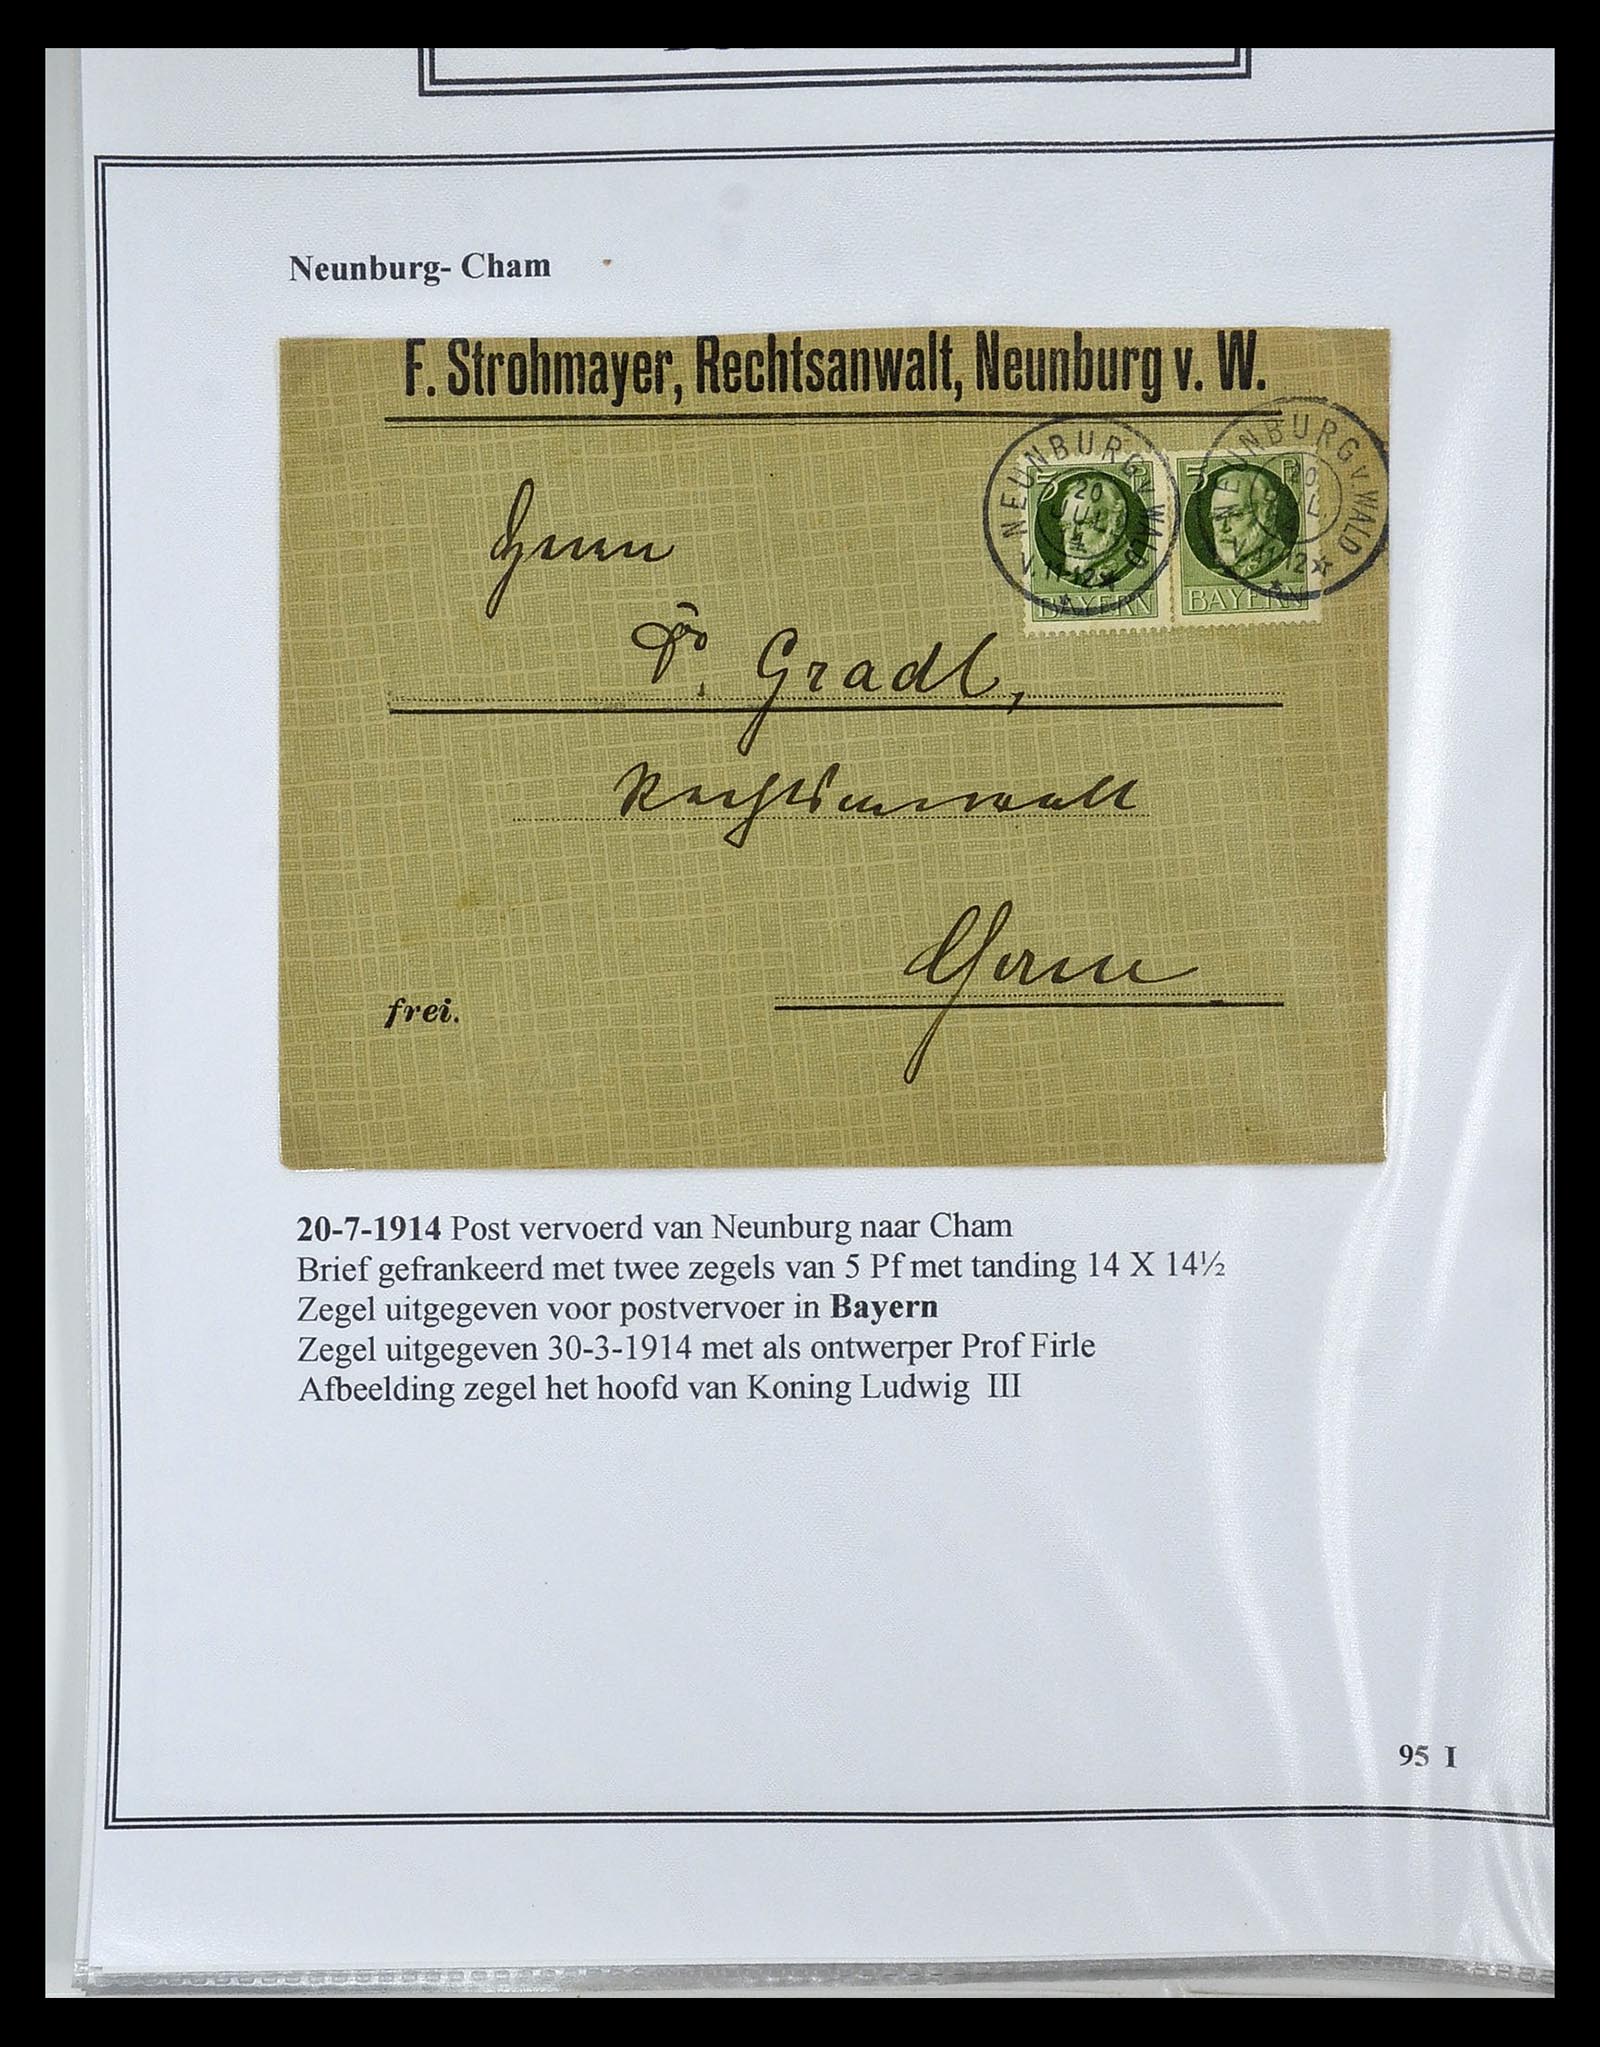 Neunburg- Cham
F. Strohmayer, Rechtsanwalt, Neunburg v. W.
NEUNBURG V WALD
20
JUL
V. 11-12
NEUNBURG V WALD
20
V. 11-12
5
5
BAYERN
BAYERN
Herrn
Dr. Gradl,
Rechtsanwalt
Cham
frei.
20-7-1914 Post vervoerd van Neunburg naar Cham
Brief gefrankeerd met twee zegels van 5 Pf met tanding 14 X 14½
Zegel uitgegeven voor postvervoer in Bayern
Zegel uitgegeven 30-3-1914 met als ontwerper Prof Firle
Afbeelding zegel het hoofd van Koning Ludwig III
95 I